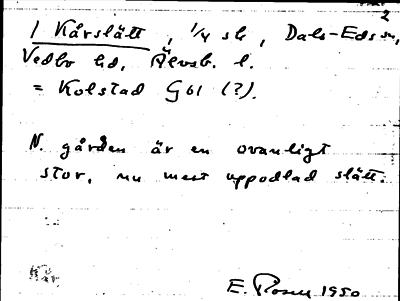 2
1 Kårslätt, 1/4 sk, Dals-Eds sn,
Vedbo hd, Älvsb. l.
= Kolstad G61 (?).
N. gården är en ovanligt
stor, nu mest uppodlad slätt.
E. Rosen 1950